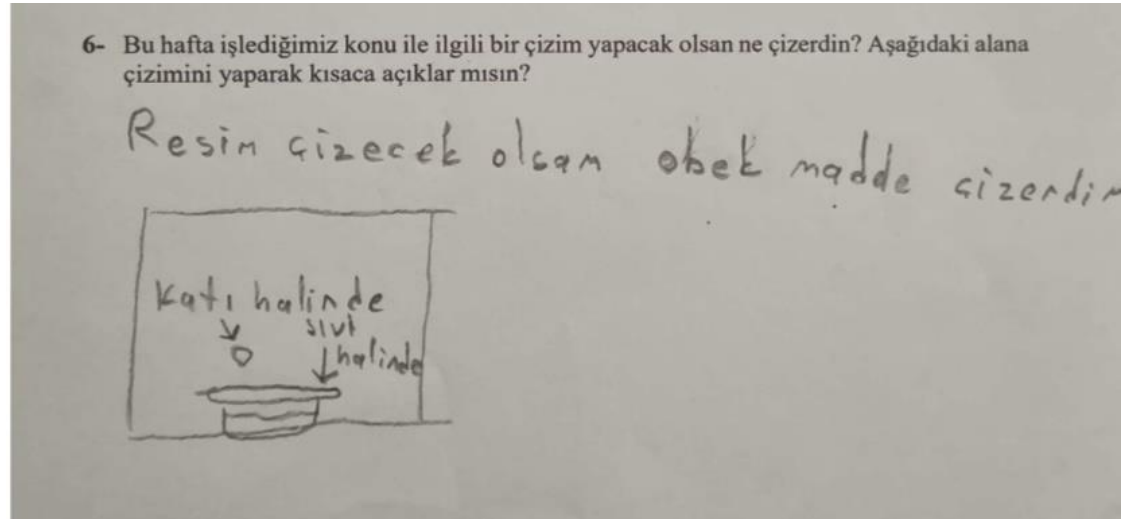 6- Bu hafta işlediğimiz konu ile ilgili bir çizim yapacak olsan ne çizerdin? Aşağıdaki alana
çizimini yaparak kısaca açıklar mısın?
Resim çizecek olsam obek madde çizerdim
Katı halinde
sıvı
halinde